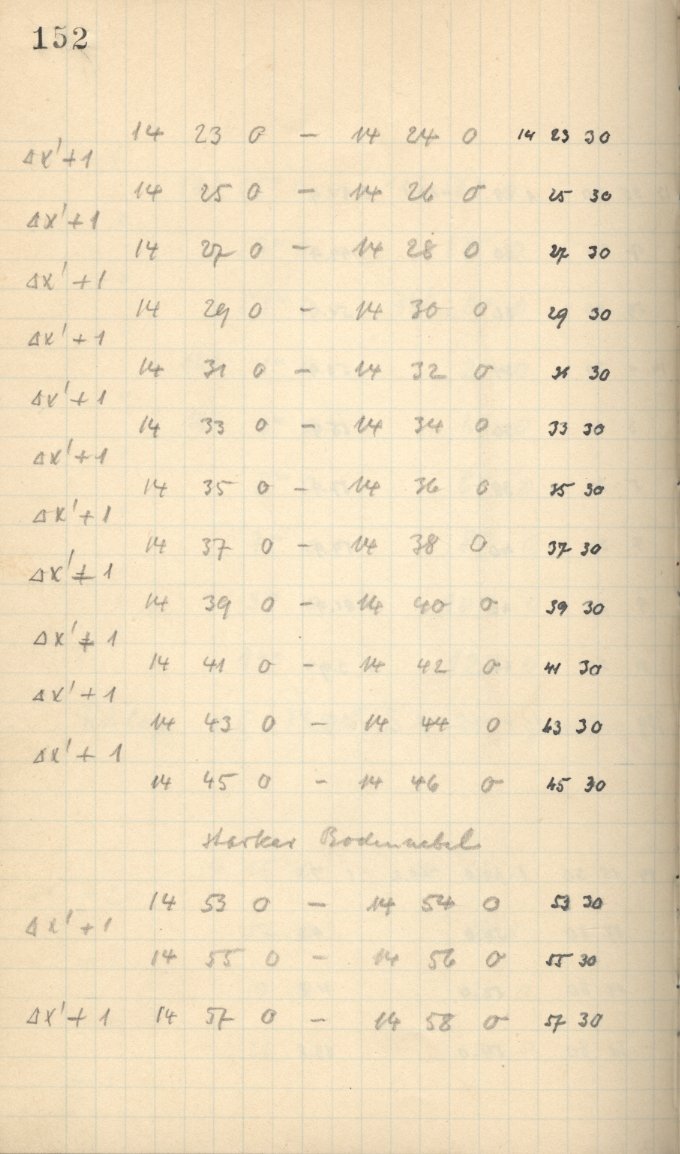 152
14 23 0 – 14 24 0 14 23 30
Δx'+1
14 25 0 – 14 26 0 25 30
Δx'+1
14 27 0 – 14 28 0 27 30
Δx'+1
14 29 0 – 14 30 0 29 30
Δx'+1
14 31 0 – 14 32 0 31 30
Δx'+1
14 33 0 – 14 34 0 33 30
Δx'+1
14 35 0 – 14 36 0 35 30
Δx'+1
14 37 0 – 14 38 0 37 30
Δx'+1
14 39 0 – 14 40 0 39 30
Δx'+1
14 41 0 – 14 42 0 41 30
Δx'+1
14 43 0 – 14 44 0 43 30
Δx'+1
14 45 0 – 14 46 0 45 30
starker Bodennebel
14 53 0 – 14 54 0 53 30
Δx'+1
14 55 0 – 14 56 0 55 30
Δx'+1 14 57 0 – 14 58 0 57 30